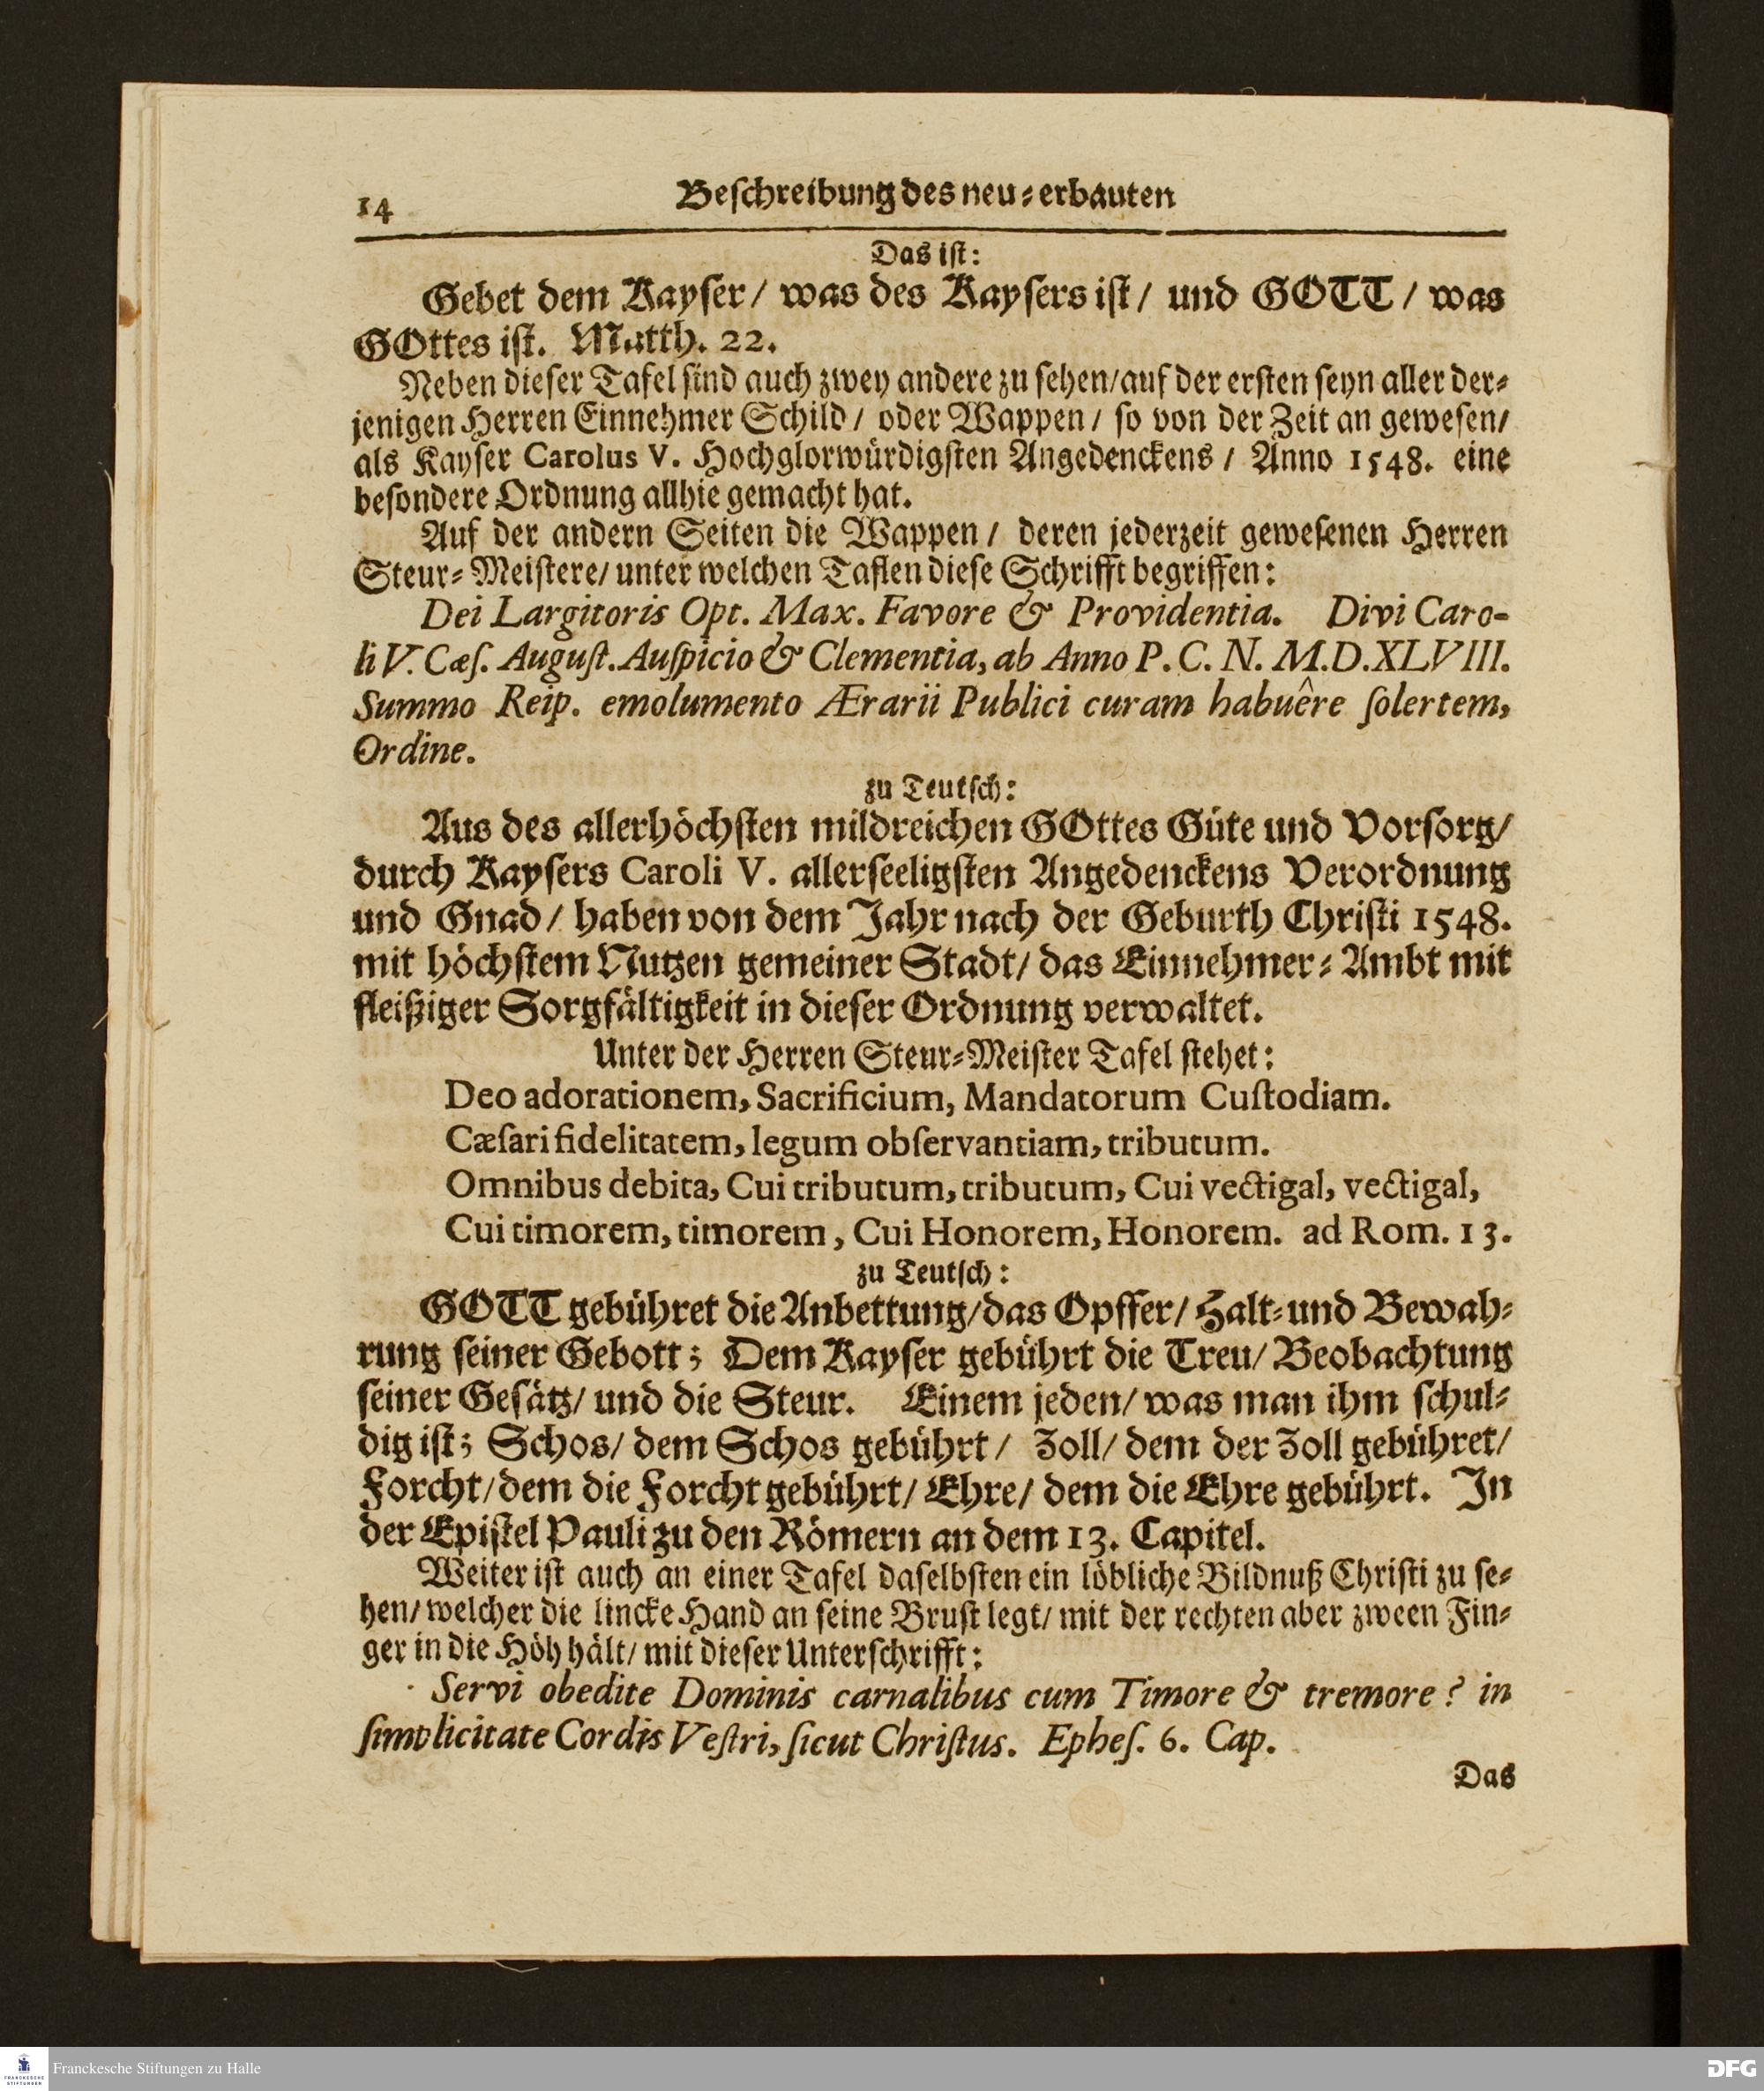 14 Beſchreibung des neu⸗erbauten
Das iſt:
Gebet dem Kayſer/ was des Kayſers iſt/ und GOTT/ was
GOttes iſt. Matth. 22.
Neben dieſer Tafel ſind auch zwey andere zu ſehen/auf der erſten ſeyn aller der⸗
jenigen Herren Einnehmer Schild/ oder Wappen/ ſo von der Zeit an geweſen/
als Kayſer Carolus V. Hochglorwürdigſten Angedenckens/ Anno 1548. eine
beſondere Ordnung allhie gemacht hat.
Auf der andern Seiten die Wappen/ deren jederzeit geweſenen Herren
Steur⸗Meiſtere/ unter welchen Taflen dieſe Schrifft begriffen:
Dei Largitoris Opt. Max. Favore & Providentia. Divi Caro-
li V. Cæſ. Auguſt. Auſpicio & Clementia, ab Anno P. C. N. M.D.XLVIII.
Summo Reip. emolumento Ærarii Publici curam habuêre ſolertem,
Ordine.
zu Teutſch:
Aus des allerhöchſten mildreichen GOttes Güte und Vorſorg/
durch Kayſers Caroli V. allerſeeligſten Angedenckens Verordnung
und Gnad/ haben von dem Jahr nach der Geburth Chriſti 1548.
mit höchſtem Nutzen gemeiner Stadt/ das Einnehmer⸗Ambt mit
fleißiger Sorgfältigkeit in dieſer Ordnung verwaltet.
Unter der Herren Steur⸗Meiſter Tafel ſtehet:
Deo adorationem, Sacrificium, Mandatorum Cuſtodiam.
Cæſari fidelitatem, legum obſervantiam, tributum.
Omnibus debita, Cui tributum, tributum, Cui vectigal, vectigal,
Cui timorem, timorem, Cui Honorem, Honorem. ad Rom. 13.
zu Teutſch:
GOTT gebühret die Anbettung/das Opffer/ Halt⸗und Bewah⸗
rung ſeiner Gebott; Dem Kayſer gebührt die Treu/ Beobachtung
ſeiner Geſätz/ und die Steur. Einem jeden/ was man ihm ſchul⸗
dig iſt; Schos/ dem Schos gebührt/ Zoll/ dem der Zoll gebühret/
Forcht/dem die Forcht gebührt/ Ehre/ dem die Ehre gebührt. In
der Epiſtel Pauli zu den Römern an dem 13. Capitel.
Weiter iſt auch an einer Tafel daſelbſten ein löbliche Bildnuß Chriſti zu ſe⸗
hen/ welcher die lincke Hand an ſeine Bruſt legt/ mit der rechten aber zween Fin⸗
ger in die Höh hält/ mit dieſer Unterſchrifft:
Servi obedite Dominis carnalibus cum Timore & tremore? in
ſimplicitate Cordis Veſtri, ſicut Chriſtus. Epheſ. 6. Cap.
Das
FRANCKESCHE
STIFTUNGEN
Franckesche Stiftungen zu Halle
DFG